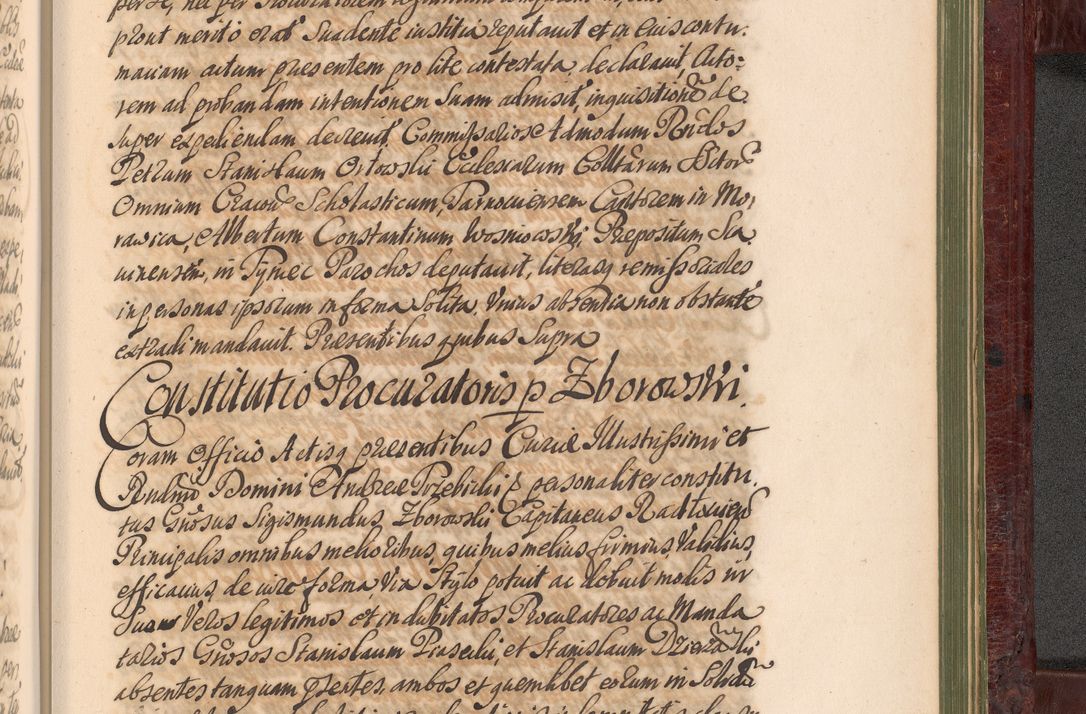 prout merito erat Suadente iustitia reputauit et in eius contu:
maciam actum presentem pro lite contestata declarauit, Acto:
rem ad probandam intentionem Suam admisit, inquisitione de
super expediendam decreuit. Commissarios Admodum Rndos
Petrum Stanislaum Orłowski Ecclesiarum Colltarum
Omnium Cracou Scholasticum, Tarnouiensem Cantorem in Mo,
rawica, Albertum Constantinum Wosniowski Prepositum Ska
uinensem, in Tyniec Parochos deputauit, literasq remissoriales
in personas ipsorum in forma Solita, Vnius absentia non obstante
extradi mandauit. Præsentibus quibus Supra
Constitutio Procuratoris p Zborowski.
Coram Officio Actisq presentibus Curiæ Illustrissimi et
Rndmi Domini Andreæ Trzebicki personaliter constitu,
tus Gnosus Sigismundus Zborowski Capitaneus
Principalis omnibus melioribus, quibus melius firmius, Validius,
efficacius, de iure forma, Via Stylo potuit ac debuit modis in
Suos Veros legitimos et indubitatos Procuratores ac Manda
tarios Gnosos Stanislaum Piasecki, et Stanislaum
absentes tanquam psentes, ambos et quemlibet eorum in Solidu